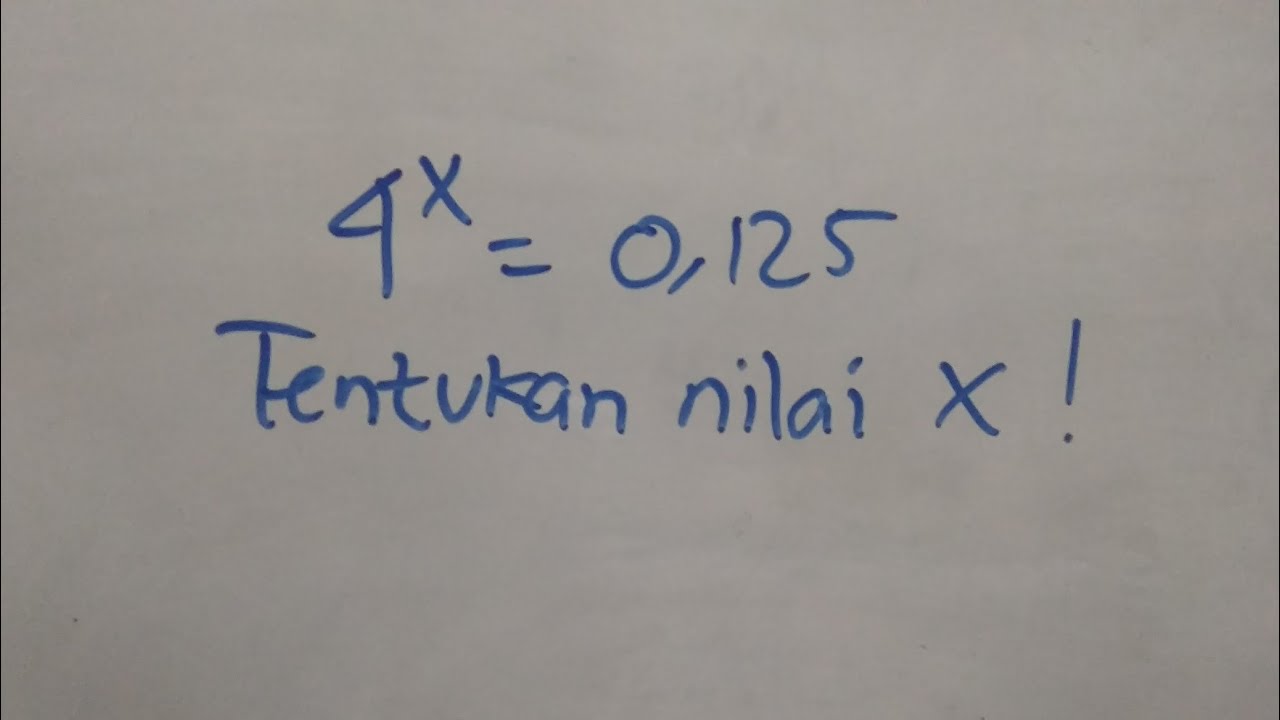 4^x = 0,125
Tentukan nilai x !